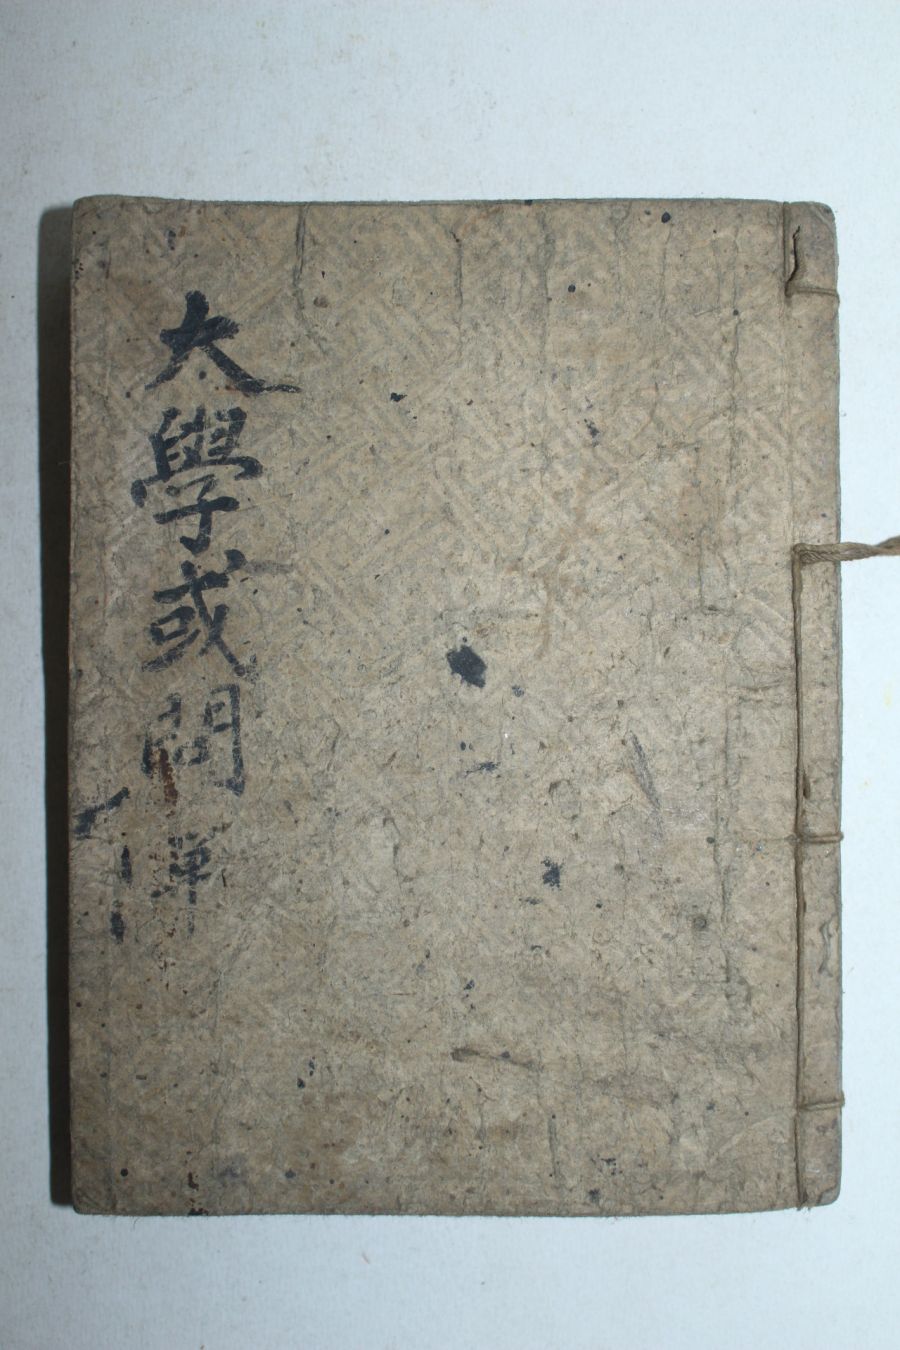 大學或問單